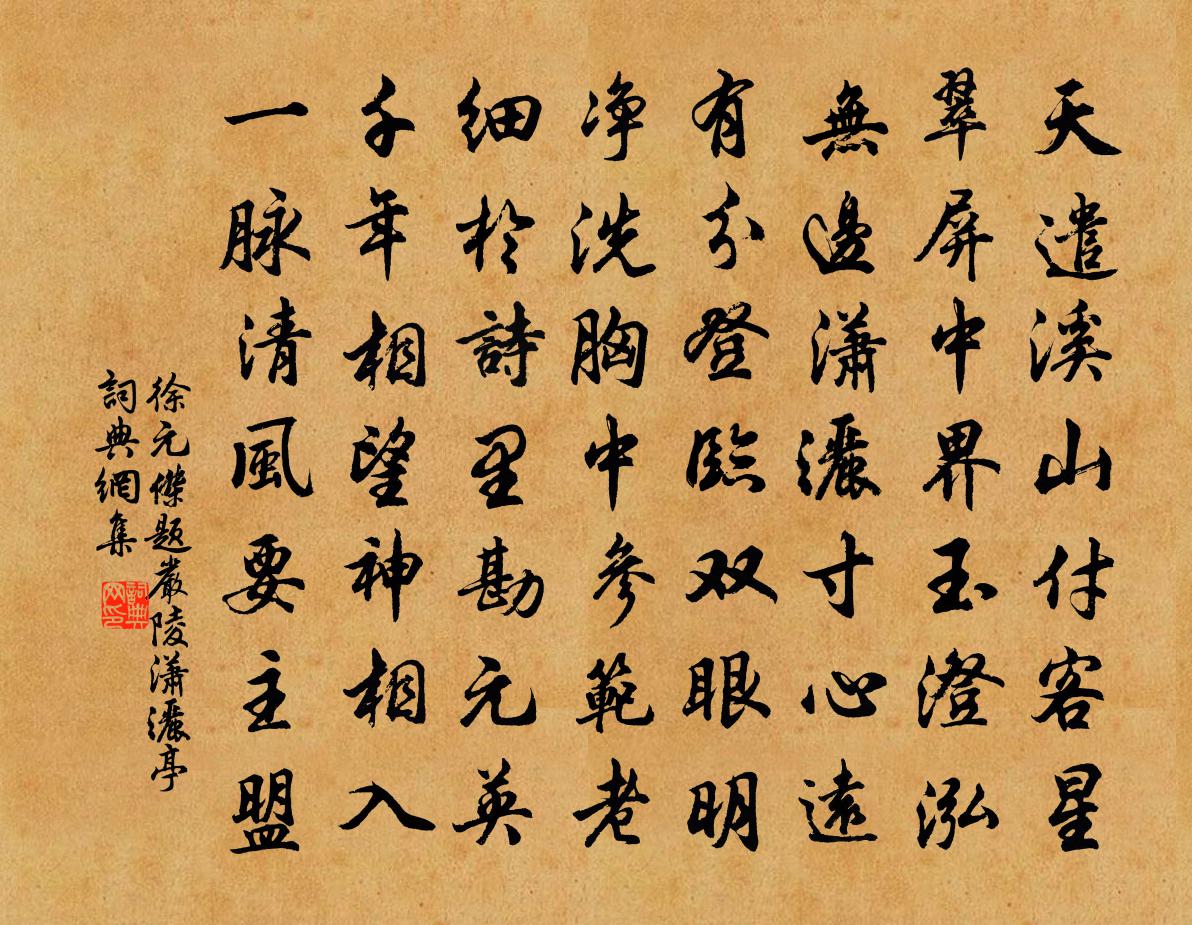 天遣溪山付客星
翠屏中界玉澄泓
無邊瀟灑寸心遠
有分登臨双眼明
净洗胸中參範老
細於詩里勘元英
千年相望神相入
一脉清風要主盟
徐元傑題嚴陵瀟灑亭
詞典網集
詞典
网印